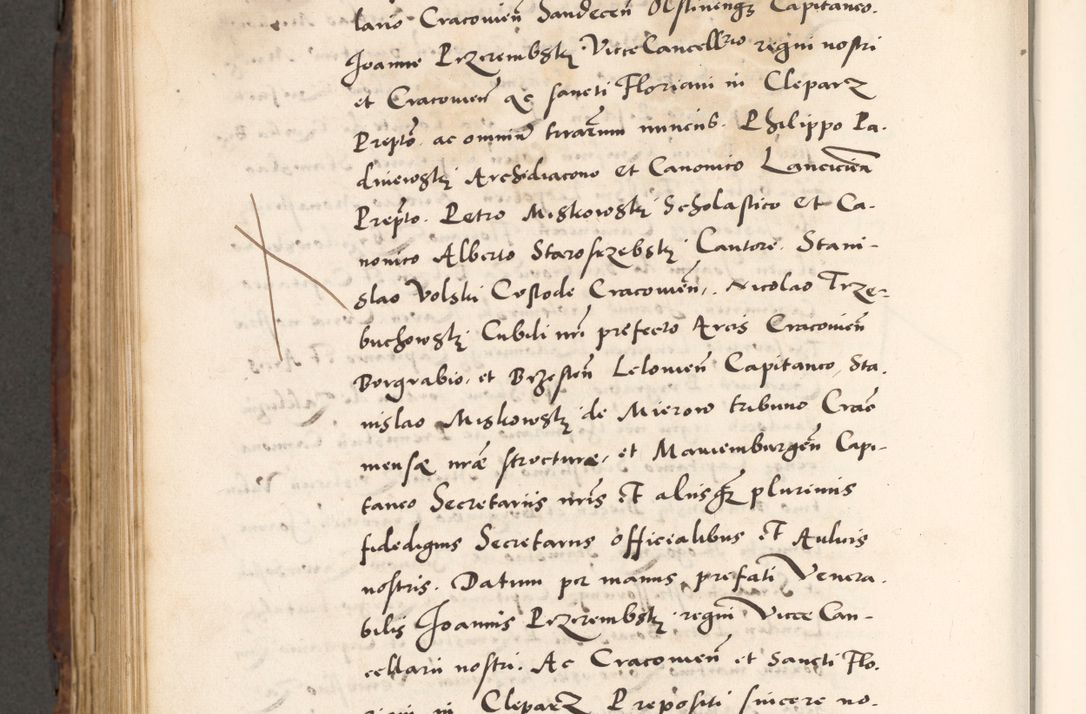 lario Cracovien Sandecen Olstinenqz Capitaneo.
Joanne Przerembskj Vicecancellrio regni nostri
et Cracovien ac sancti Floriani in Cleparz
Prepto. ac omnium
Philippo Pa-
dniewskj Archidiacono et Canonico Lancicien
Prepto. Petro Miskowskj Scholastico et Ca-
nonico Alberto Starosrzebskj Cantore. Stani-
slao Volski Custode Cracovien. Nicolao Trze-
buchowskj Cubili nri prefecto Arcis Cracovien
Borgrabio, et Brzesten Lelovien Capitaneo, Sta-
nislao Miskowskj de Mierow tribuno Crac
mensæ nræ structore, et Mariemburgen Capi-
taneo Secretariis nris et aliisqz pluremis
fidedignis Secretariis officialibus et Aulicis
nostris. Datum per manus prefati Venera-
bilis Joannis Przerembskj regni Vice Can-
cellarii nostri. Ac Cracovien et Sancti Flo-
riani in Cleparz Prepositi sincere no-